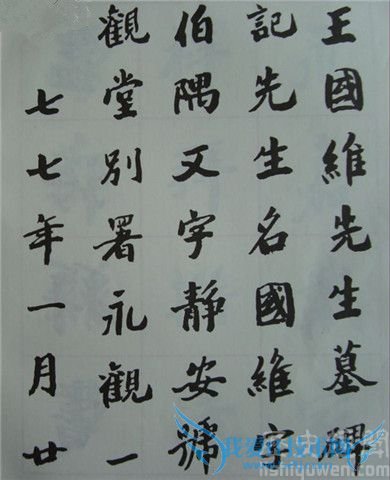 王國維先生墓碑
記先生名國維字
伯隅又字靜安號
觀堂別署永觀一
七七年一月廿
lishiquwen.com